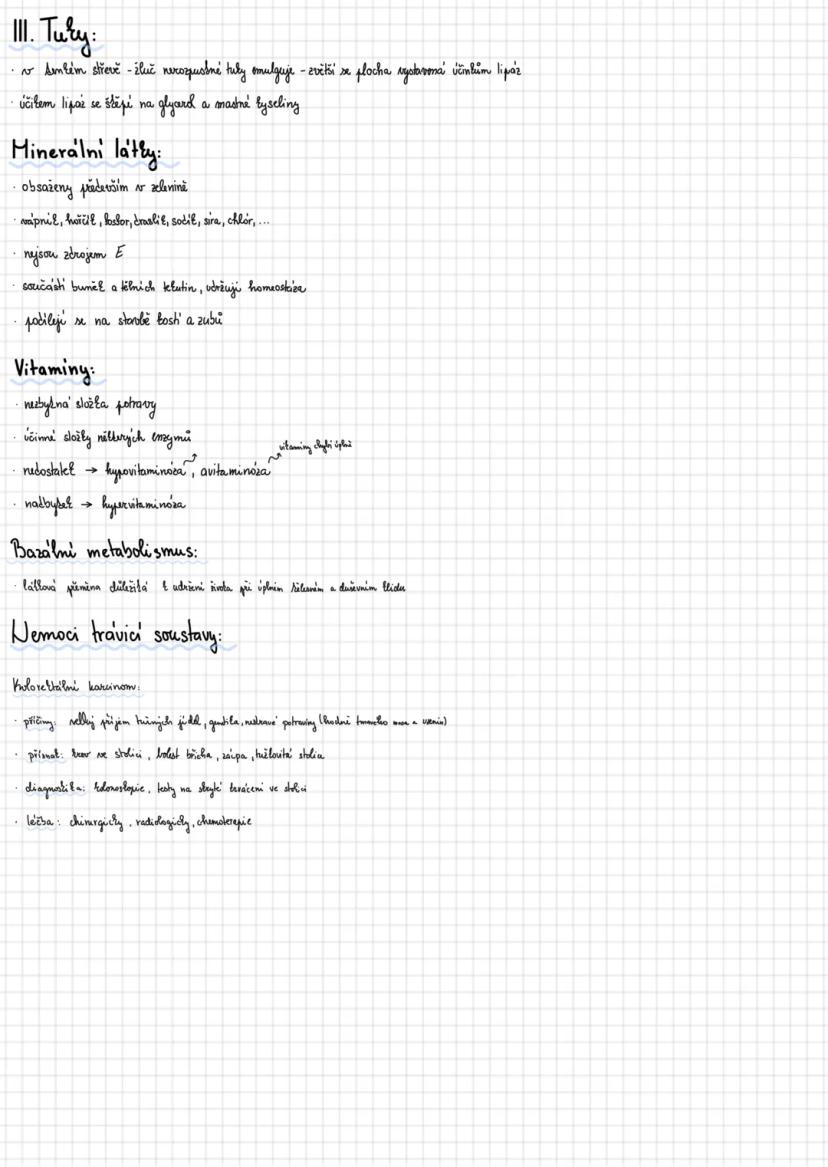 III. Tuky:
· v tenkém střevě - žluč nerozpustné tuky emulguje - zvětší se plocha vystavená účinkům lipáz
· účikem lipáz se štěpí na glycerol a mastné kyseliny
Minerální látky:
· obsaženy především v zelenině
· vápník, hořčík, fosfor, draslík, sodík, síra, chlór, ...
· nejsou zdrojem E
· součástí buněk a tělních tekutin, udržují homeostázu
· podílejí se na stavbě kostí a zubů
Vitaminy:
· nezbytná složka potravy
· účinné složky některých enzymů
vitaminy chybí úplně
· nedostatek → hypovitaminóza, avitaminóza
· nadbytek → hypervitaminóza
Bazální metabolismus:
· látková přeměna důležitá k udržení života při úplném tělesném a duševním klidu
Nemoci trávicí soustavy:
Kolorektální karcinom:
· příčiny: velký příjem tučných jídel, genetika, nezdravé potraviny (hodně tmavého masa a uzenin)
· příznak: krev ve stolici, bolest břicha, zácpa, tužkovitá stolice
· diagnostika: kolonoskopie, testy na skryté krvácení ve stolici
· léčba: chirurgicky, radiologicky, chemoterapie